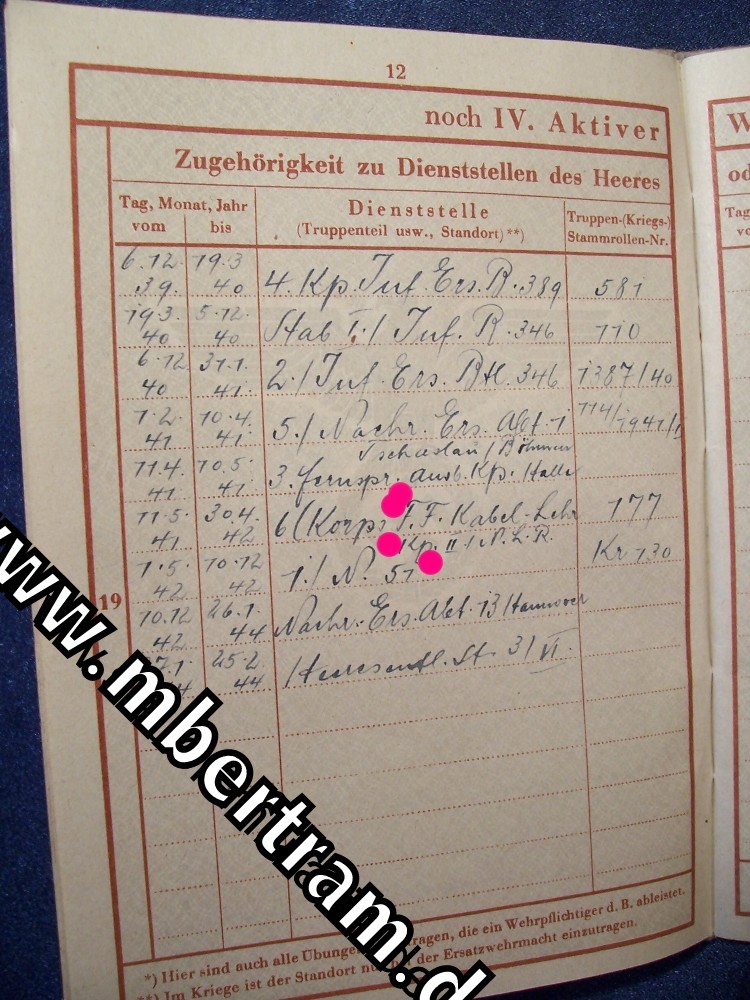 12
noch IV. Aktiver
W
Zugehörigkeit zu Dienststellen des Heeres
od
Tag, Monat, Jahr
vom
bis
Dienststelle
(Truppenteil usw., Standort)**)
Truppen-(Kriegs-)
Stammrollen-Nr.
Tag
vo
6.12. 39. 19.3 40 4. Kp. Inf. Ers. B. 389 581
19.3. 40 5.12. 40 Stab I./ Inf. R. 346 110
6.12 40 31.1. 41. 2./ Inf. Ers. Btl. 346 1387/40
1.2. 41 10.4. 41. 5./ Nachr. Ers. Abt. 1 714/1941/
Tschaslau/Böhmen
11.4. 41 10.5. 41. 3. Fernspr. Ausb. Kp. Halle
11.5. 41 30.4. 42 6(Korps F.F. Kabel-Lehr 177
Kp. II/ N.L.R.
1.5. 42 10.12 42. 1./ N. 51 Kr 130
19
10.12 42 26.1. 44 Nachr. Ers. Abt. 13/Hannover
25.2. 44 Heeresentl. St. 3/VI.
*) Hier sind auch alle Übungen die ein Wehrpflichtiger d. B. ableistet.
**) Im Kriege ist der Standort der Ersatzwehrmacht einzutragen.
www.mbertram.d